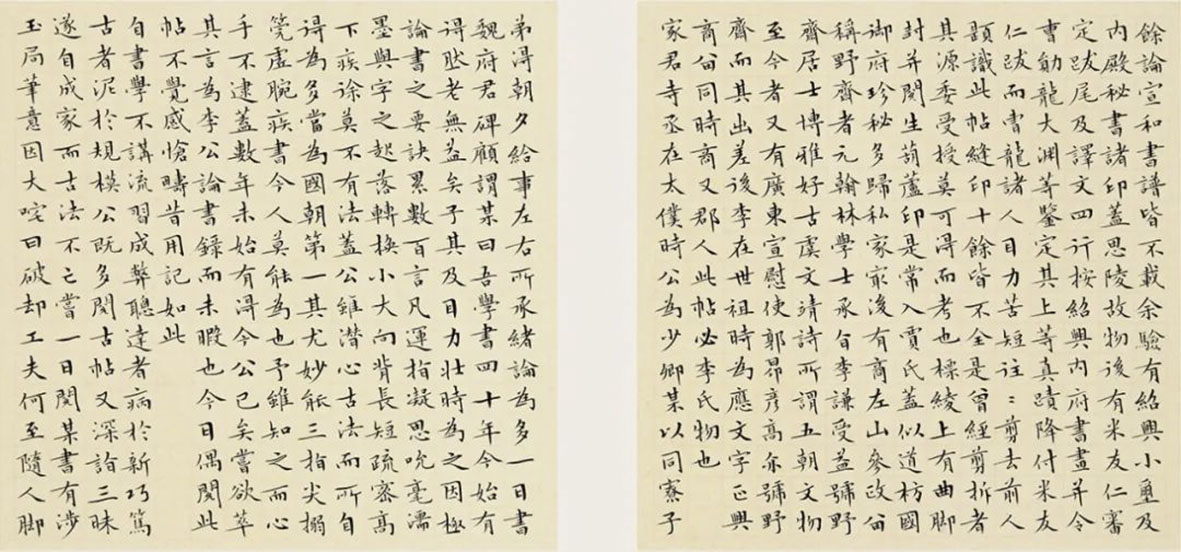 餘論宣和書譜皆不載余驗有紹興小璽及
内殿秘書諸印蓋思陵故物後有米友仁審
定跋尾及譯文四行按紹興内府書畫并令
曹勛龍大渊等鑒定其上等真蹟降付米友
仁跋而曹龍諸人目力苦短往〻剪去前人
題識此帖縫印十餘皆不全是曾經剪拆者
其源委受授莫可得而考也標綾上有曲脚
封并閱生葫蘆印是常入賈氏蓋似道枋國
御府珍秘多歸私家㝡後有商左山參政仝
稱野齊者元翰林學士承旨李謙受益號野
齊居士博雅好古虞文靖詩所謂五朝文物
至今者又有廣東宣慰使郭昂彥高亦號野
齊而其出差後李在世祖時為應文字正與
商仝同時商又郡人此帖必李氏物也
家君寺丞在太僕時公為少卿某以同寮子
弟得朝夕給事左右所承緒論為多一日書
魏府君碑顧謂某曰吾學書四十年今始有
得然老無益矣子其及目力壯時為之因極
論書之要訣累數百言凡運指凝思吮毫濡
墨與字之起落轉換小大向背長短疏密高
下疾徐莫不有法蓋公雖潛心古法而所自
得為多當為國朝第一其尤妙能三指尖搦
筦虛腕疾書今人莫能為也予雖知之而心
手不逮蓋數年未始有得今公已矣嘗欲萃
其言為李公論書錄而未暇也今日偶閱此
帖不覺感愴疇昔用記如此
自書學不講流習成弊聰達者病於新巧篤
古者泥於規模公既多閱古帖又深詣三昧
遂自成家而古法不亡嘗一日閱某書有涉
玉局筆意因大咤曰破却工夫何至隨人脚